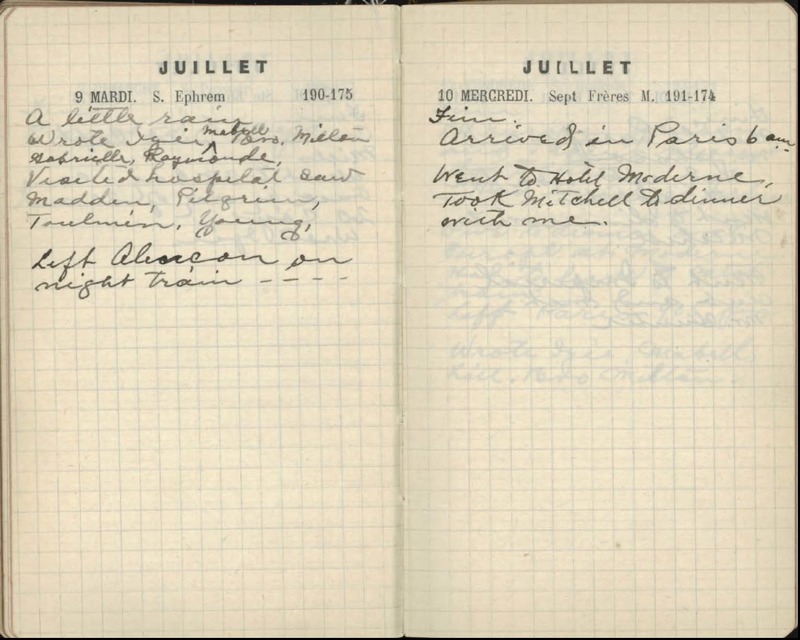 JUILLET
9 MARDI. S. Ephrem 190-175
A little rain
Wrote Izie, Mabell, Bro. Milton
Gabrielle, Raymonde,
Visited hospital saw
Madden, Pilgrim,
Toulmin, Young,
Left Alencon on
night train - - - -
JUILLET
10 MERCREDI. Sept Frères M. 191-174
Fine.
Arrived in Paris 6 am
Went to Hotel Moderne,
Took Mitchell to dinner
with me.